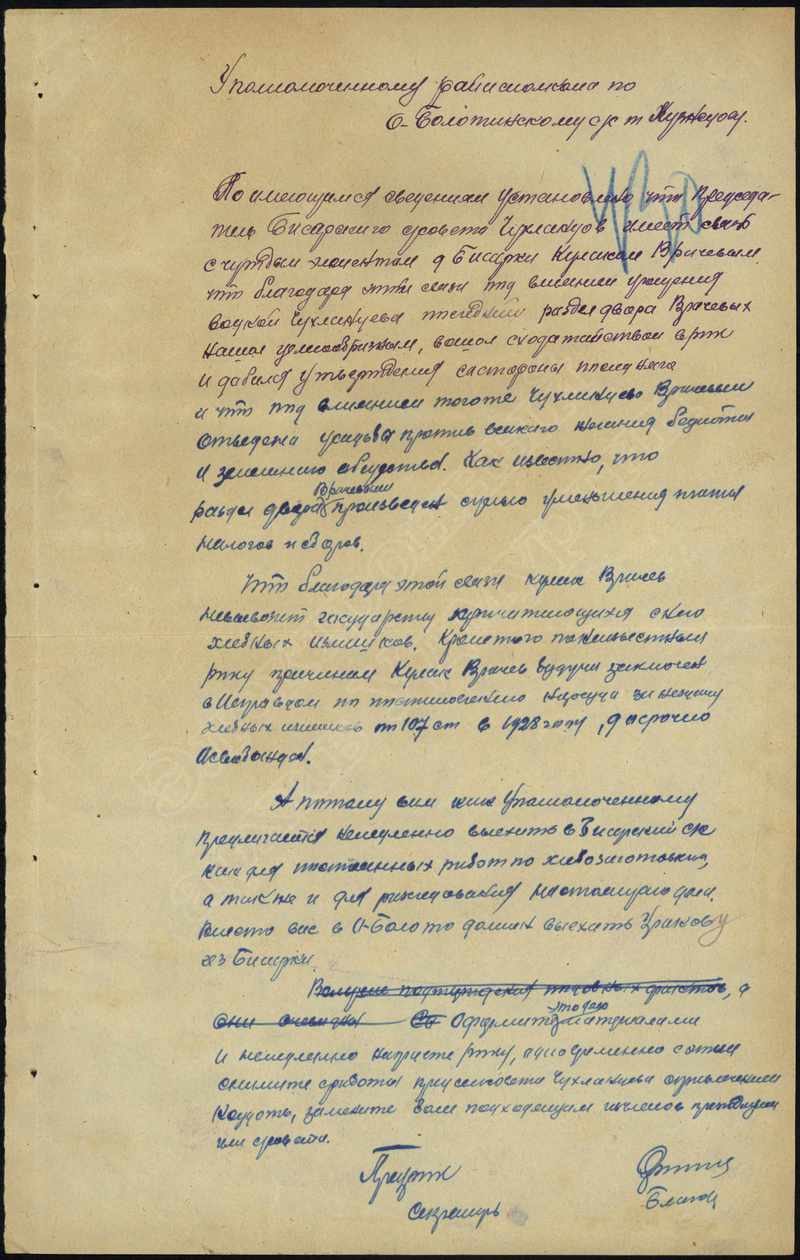 Уполномоченному райисполкома по
О-Болотинскому с/с т Кузнецову.
По имеющимся сведениям установлено что председа-
тель Бисарского сельсовета Чухланцов имеет связь
с чуждым элементом д Бисарки Кулаком Врачевым
что благодаря этой связи под влиянием угощения
водкой Чухланцева последний раздел двора Врачевых
нашол целесообразным, вошол с ходатайством в рик
и добился утверждения со стороны последнего
и что под влиянием тогоже Чухланцева Врачевым
отведена усадьба против всякого желания бедноты
и земельного общества. Как известно, что
раздел двора Врачевыми произведен с целью уменьшения платы
налогов и сборов.
Что благодаря этой связи кулак Врачев
невывозит государству причитающихся с него
хлебных излишков. Кроме того по неизвестным
рику причинам Кулак Врачев будучи заключен
в Исправдом по постановлению нарсуда за несдачу
хлебных излишков по 107 ст в 1928 году, досрочно
Освобожден.
А потому вам как Уполномоченному
предлагается немедленно выехать в Бисарский с/с
как для постоянных работ по хлебозаготовкам,
а также и для расследования настоящего дела.
Вместо вас в О-Болото должен выехать Ушакову
из Бисарки.
В случае подтверждения таковых фактов, а
они очевидны Оформите это дело материалами
и немедленно направте рику, одновременно с этим
снимите с работы предсельсовета Чухланцева с привлечением
к суду, замените более подходящим из членов президиума
или совета.
Предрик
Секретарь